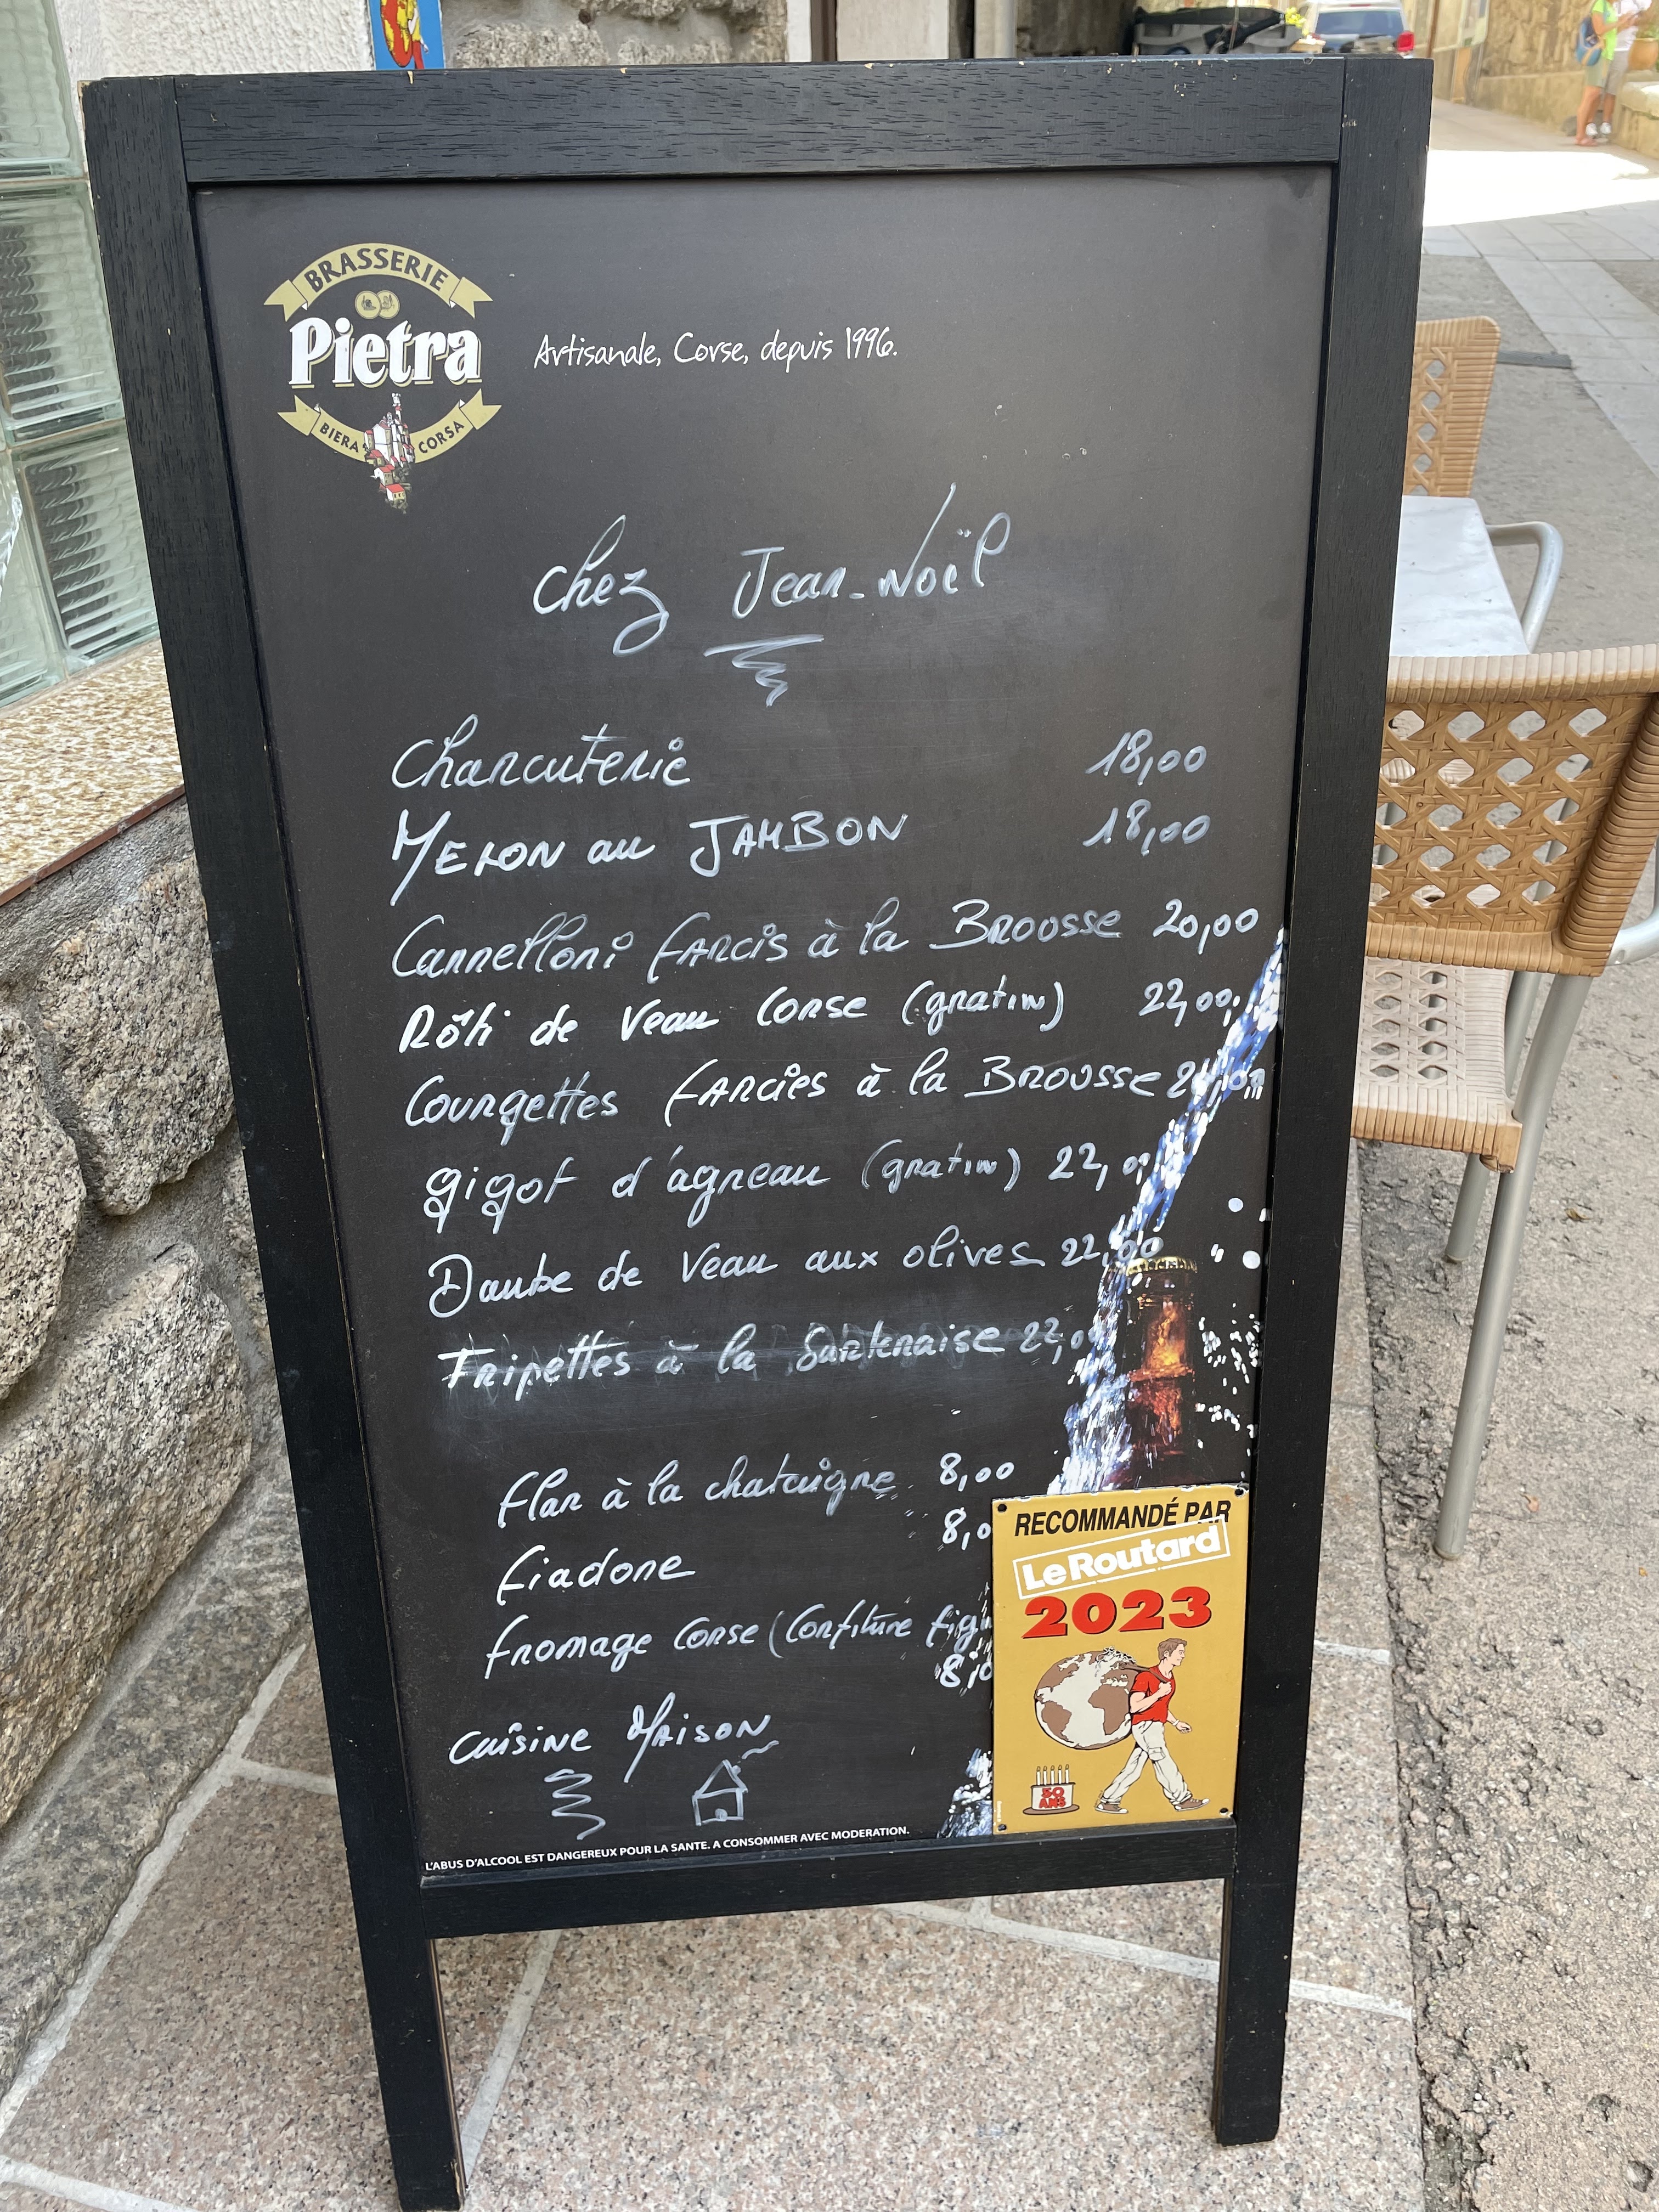 BRASSERIE
Pietra
BIERA CORSA
Artisanale, Corse, depuis 1996.
Chez Jean-Noël
Charcuterie 18,00
MELON au JAMBON 18,00
Cannelloni farcis à la Brousse 20,00
Rôti de Veau Corse (gratin) 22,00
Courgettes farcies à la Brousse
gigot d'agneau (gratin) 22,00
Daube de Veau aux olives 22,00
Tripettes à la Sartenaise 22,00
flan à la chataigne 8,00
fiadone 8,0
fromage Corse (Confiture figu
8,0
Cuisine Maison
L'ABUS D'ALCOOL EST DANGEREUX POUR LA SANTE. A CONSOMMER AVEC MODERATION.
RECOMMANDÉ PAR
Le Routard
2023
50
ANS